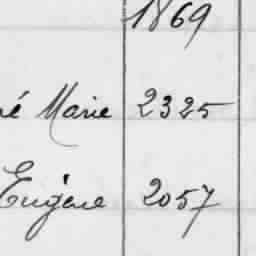 1869
né Marie 2325
Eugène 2057